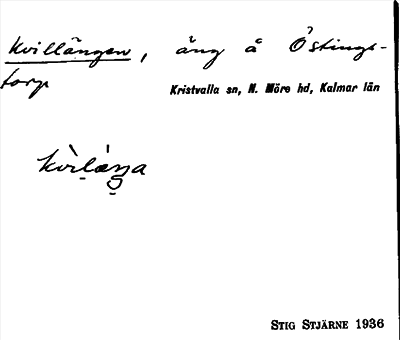 Kvillängen, äng å Östings-
torp
Kristvalla sn, N. Möre hd, Kalmar län
kvìlàŋa
STIG STJÄRNE 1936